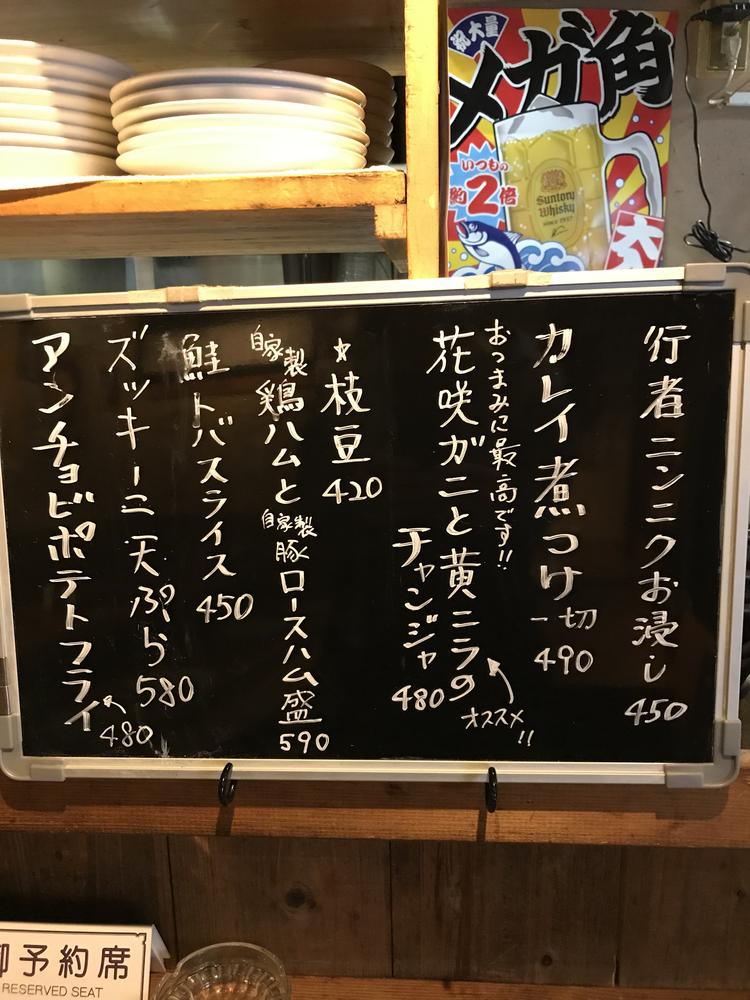 超大量
メガ角
いつもの
約2倍
Suntory
Whisky
SINCE 1937
行者ニンニクお浸し
450
カレイ煮つけ
一切
490
おつまみに最高です!!
花咲ガニと黄ニラの
チャンジャ
480
オススメ!!
☆枝豆
420
自家製
鶏ハムと
自家製
豚ロースハム盛
590
鮭トバスライス
450
ズッキーニ天ぷら
580
アンチョビポテトフライ
480
御予約席
RESERVED SEAT